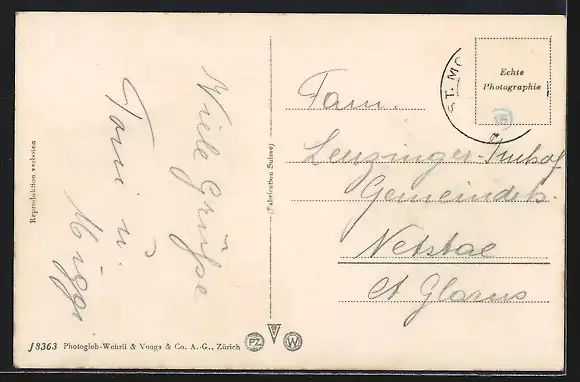 Viele Grüsse
Toni u.
Fam.
Leuzinger-Imhof
Gemeindeh.
Netstal
Ct Glarus
ST. MO
Echte
Photographie
Reproduktion verboten
(Fabrication Suisse)
J8363 Photoglob-Wehrli & Vouga & Co. A.-G., Zürich
PZ
W